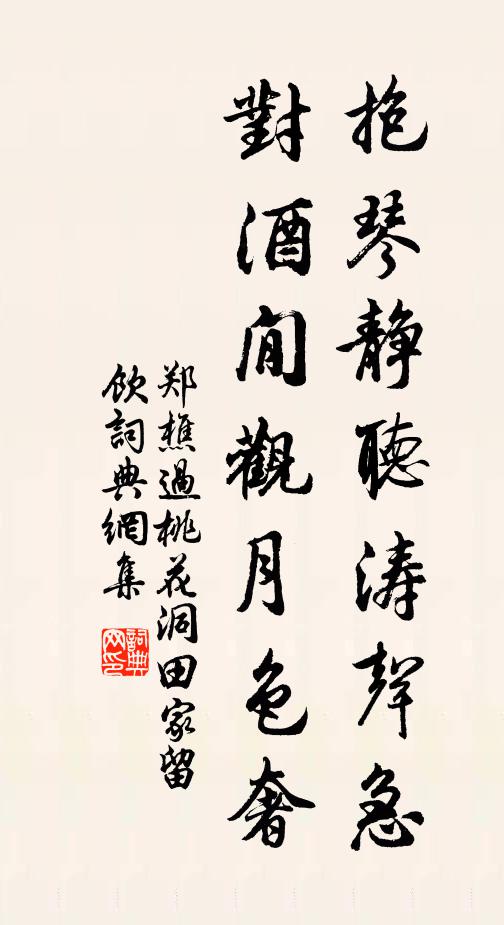 抱琴静聽涛聲急
對酒閒觀月色奢
郑樵過桃花洞田家留
飲詞典網集
詞典
网印